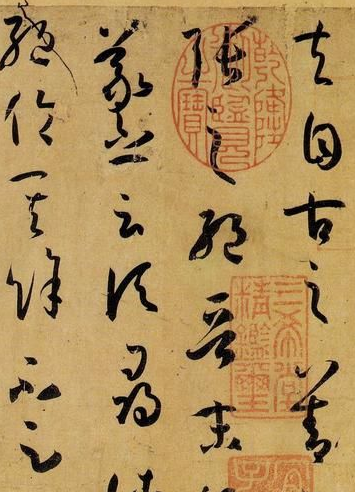 夫自古之善
張之絕晉末
羲之云頃尋
絕倫其餘不足
乾隆御覽之寶
三希堂精鑑璽